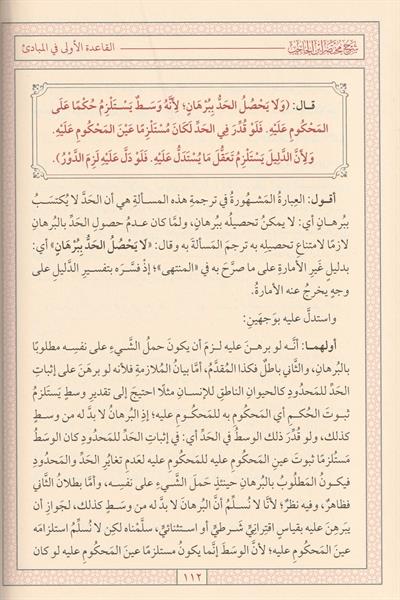 شرح مختصر ابن الحاجب
القاعدة الأولى في المبادئ
قال: (وَلَا يَحْصُلُ الحَدُّ بِبُرْهَانٍ؛ لِأَنَّهُ وَسَطٌ يَسْتَلْزِمُ حُكْمًا عَلَى
المَحْكُومِ عَلَيْهِ. فَلَوْ قُدِّرَ فِي الحَدِّ لَكَانَ مُسْتَلْزِمًا عَيْنَ المَحْكُومِ عَلَيْهِ.
وَلِأَنَّ الدَّلِيلَ يَسْتَلْزِمُ تَعَقُّلَ مَا يُسْتَدَلُّ عَلَيْهِ. فَلَوْ دَلَّ عَلَيْهِ لَزِمَ الدَّوْرُ).
أقول: العِبارةُ المَشْهُورةُ في ترجمةِ هذه المسألةِ هي أن الحَدَّ لا يُكتسَبُ
ببُرهانٍ أي: لا يمكنُ تحصيلُه ببرهانٍ، ولمَّا كان عدمُ حصولِ الحَدِّ بالبُرهانِ
لازمًا لامتناعِ تحصيلِه به ترجمَ المَسألةَ به وقال: «لا يَحْصُلُ الحَدُّ بِبُرْهَانٍ» أي:
بدليلٍ غَيرِ الأمارةِ على ما صرَّحَ به في «المنتهى»؛ إذْ فسَّرَه بتفسيرِ الدَّليلِ على
وجهٍ يخرجُ عنه الأمارةُ.
واستدلَّ عليه بوَجهَينِ:
أولهما: أنَّه لو برهنَ عليه لزمَ أن يكونَ حملُ الشَّيءِ على نفسِه مطلوبًا
بالبُرهانِ، والثَّاني باطلٌ فكذا المُقدَّمُ، أمَّا بيانُ المُلازمةِ فلأنه لو برهَنَ على إثباتِ
الحَدِّ للمَحدُودِ كالحيوانِ الناطقِ للإنسانِ مثلًا احتيجَ إلى تقديرِ وسطٍ يَستَلزِمُ
ثبوتَ الحُكمِ أي المَحكُومِ به للمَحكُومِ عليه؛ إذِ البُرهانُ لا بدَّ له من وسطٍ
كذلك، ولو قُدِّرَ ذلك الوسطُ في الحَدِّ أي: في إثباتِ الحَدِّ للمَحدُودِ كان الوسَطُ
مَستَلزمًا ثبوتَ عينِ المَحكُومِ عليه للمَحكُومِ عليه لعدمِ تغايُرِ الحَدِّ والمَحدُودِ
فيكونُ المَطلوبُ بالبُرهانِ حينئذٍ حَملَ الشَّيءِ على نفسِه، وأمَّا بطلانُ الثَّاني
فظاهرٌ، وفيه نظرٌ؛ لأنَّا لا نُسلِّمُ أنَّ البُرهانَ لا بدَّ له من وسَطٍ كذلك، لجَوازِ أن
يبرهِنَ عليه بقياسٍ اقترانيٍّ شَرطيٍّ أو استثنائيٍّ، سلَّمْناه لكِن لا نُسلِّمُ استلزامَه
عينَ المَحكُومِ عليه؛ لأنَّ الوسَطَ إنَّما يكونُ مستلزِمًا عينَ المَحكُومِ عليه لو كان
١١٢